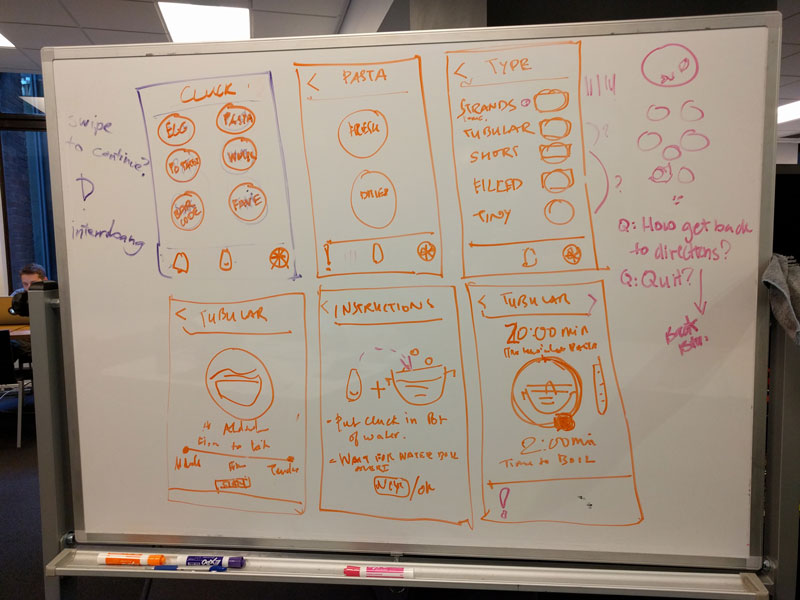 swipe
to continue?
interrobang
CLUCK
EGG
PASTA
POTATO
WATER
PASTA
FRESH
DRIED
TYPE
STRANDS
TUBULAR
SHORT
FILLED
TINY
?
Q: How get back
to directions?
Q: Quit?
TUBULAR
Firm to bite
Tender
INSTRUCTIONS
+
- Put Cluck in Pot
of water.
- WAIT FOR WATER BOIL
Next/OK
TUBULAR
2:00 min
Time to BOIL
!